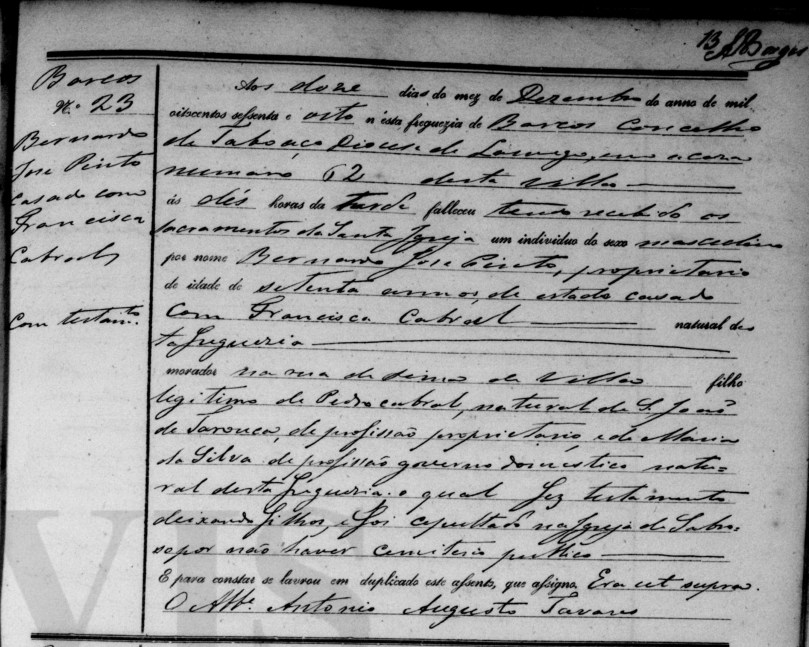 13 ABorges
Barcos
N.º 23
Bernardo
Jose Pinto
casado com
Francisca
Cabral
Com testam.to
Aos doze dias do mez de Dezembro do anno de mil
oitocentos sessenta e oito n'esta freguezia de Barcos Concelho
de Taboaço Diocese de Lamego, em a caza
numero 62 desta Villa
ás dés horas da tarde falleceu tendo recebido os
sacramentos da Santa Igreja um individuo do sexo masculino
por nome Bernardo Jose Pinto, proprietario
de idade de setenta annos, de estado casado
com Francisca Cabral natural des
ta freguezia
morador na rua de sima da Villa filho
legitimo de Pedro Cabral, natural de S. João
de Tarouca, de profissão proprietario, e de Maria
da Silva de profissão governo domestico natu=
ral desta freguezia. o qual fez testamento
deixando filhos, e foi cepultado na Igreja de Sabro:
so por não haver cemiterio publico
E para constar se lavrou em duplicado este assento, que assigno. Era ut supra.
O Abb.e Antonio Augusto Tavares
VIS